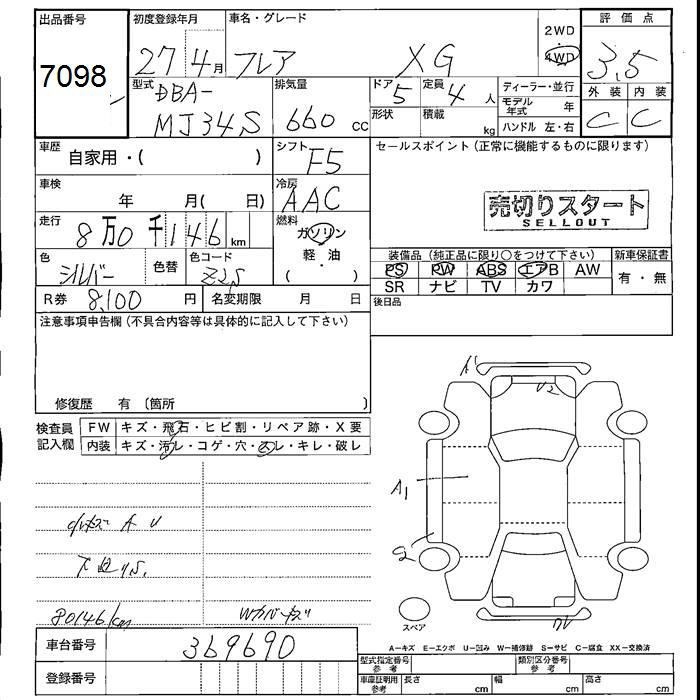 出品番号
7098
初度登録年月
27 4月
車名・グレード
フレア XG
2WD
4WD
評価点
3.5
外装 内装
C C
型式
DBA-
MJ34S
排気量
660 cc
ドア
5
定員
4 人
形状
積載
kg
ディーラー・並行
モデル年式 年
ハンドル 左・右
車歴
自家用・( )
シフト
F5
セールスポイント (正常に機能するものに限ります)
車検
年 月( 日)
冷房
AAC
売切りスタート
SELLOUT
走行
8万0千146 km
燃料
ガソリン
軽・油
( )
色
シルバー
色替
色コード
Z2S
装備品 (純正品に限り○をつけて下さい)
新車保証書
PS PW ABS エアB AW
SR ナビ TV カワ
有・無
R券 8,100 円
名変期限 月 日
後日品
注意事項申告欄 (不具合内容等は具体的に記入して下さい)
修復歴 有 (箇所 )
検査員記入欄
FW キズ・飛石・ヒビ割・リペア跡・X要
内装 キズ・汚レ・コゲ・穴・スレ・キレ・破レ
A1
U2
A1
下回りS.
80146km
Wカバーキズ
スペア
A-キズ E-エクボ U-凹み W-補修跡 S-サビ C-腐食 XX-交換済
車台番号
369690
登録番号
型式指定番号
参考
類別区分番号
参考
車庫証明用
参考
長さ cm
幅 cm
高さ cm